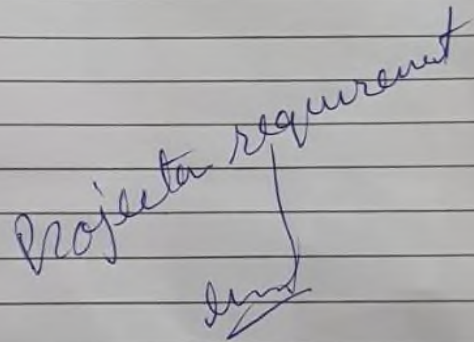 Projector requirement